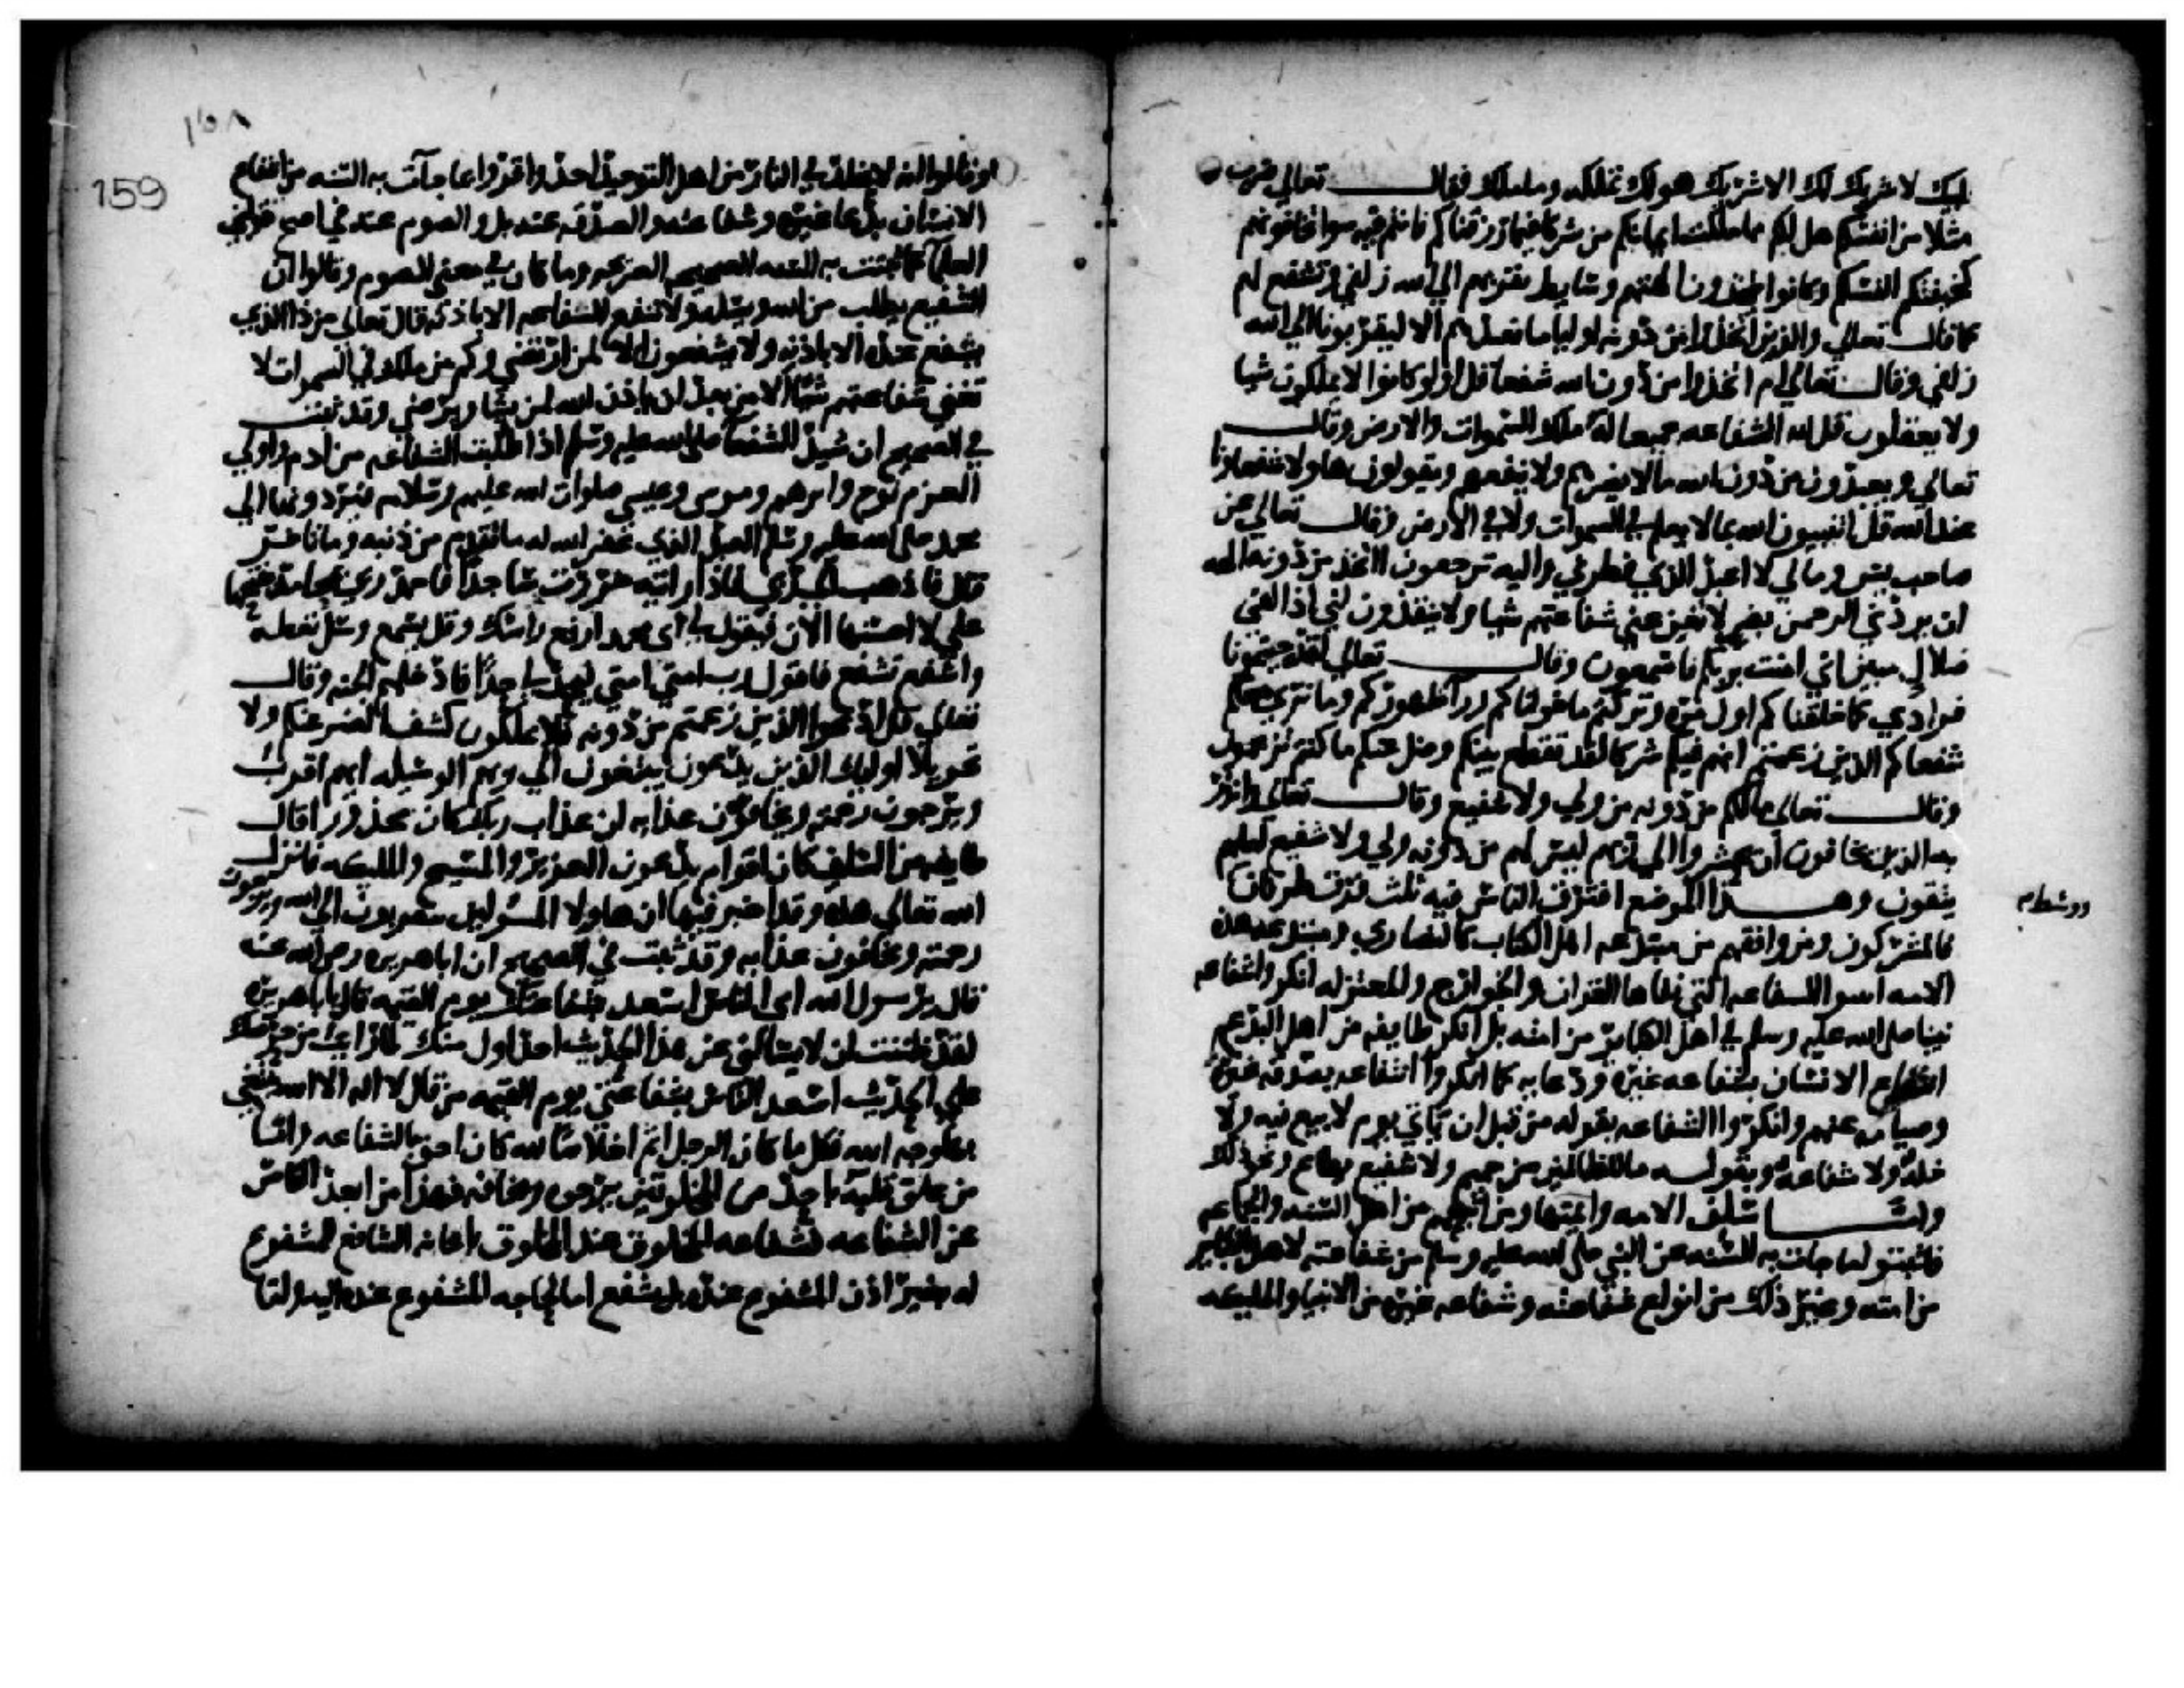 لبيك لا شريك لك الا شريك هو لك تملكه وما ملك فقال تعالي ضرب
مثلا من انفسكم هل لكم مما ملكت ايمانكم من شركا فيما رزقناكم فانتم فيه سوا تخافونهم
كخيفتكم انفسكم وكانوا يتخذون الهتهم وسايط تقربهم الي الله زلفي وتشفع لهم
كما قال تعالي والذين اتخذوا من دونه اوليا ما نعبدهم الا ليقربونا الي الله
زلفي وقال تعالي ام اتخذوا من دون الله شفعا قل اولو كانوا لا يملكون شيا
ولا يعقلون قل لله الشفاعه جميعا له ملك السموات والارض وقال
تعالي ويعبدون من دون الله ما لا يضرهم ولا ينفعهم ويقولون هاولا شفعاونا
عند الله قل اتنبيون الله بما لا يعلم في السموات ولا في الارض وقال تعالي عن
صاحب يس ومالي لا اعبد الذي فطرني واليه ترجعون ااتخذ من دونه الهه
ان يردني الرحمن بضر لا تغن عني شفاعتهم شيا ولا ينقذون اني اذا لفي
ضلال مبين اني امنت بربكم فاسمعون وقال تعالي لقد جيتمونا
فرادي كما خلقناكم اول مره وتركتم ما خولناكم ورا ظهوركم وما نري معكم
شفعاكم الذين زعمتم انهم فيكم شركا لقد تقطع بينكم وضل عنكم ما كنتم تزعمون
وقال تعالي مالكم من دونه من ولي ولا شفيع وقال تعالي وانذر
به الذين يخافون ان يحشروا الي ربهم ليس لهم من دونه ولي ولا شفيع لعلهم
يتقون وهذا الموضع افترق الناس فيه ثلث فرق طرفان
فالمشركون ومن وافقهم من مبتدعه اهل الكتاب كالنصاري ومبتدعه هذه
الامه اثبتوا الشفاعه التي نفاها القران والخوارج والمعتزله انكروا شفاعه
نبينا صلي الله عليه وسلم في اهل الكباير من امته بل انكر طايفه من اهل البدع
انتفاع الانسان بشفاعه غيره ودعايه كما انكروا انتفاعه بصدقه غيره
وصيامه عنه وانكروا الشفاعه بقوله من قبل ان ياتي يوم لا بيع فيه ولا
خله ولا شفاعه وبقوله ما للظالمين من حميم ولا شفيع يطاع ونحو ذلك
واما سلف الامه وايمتها ومن اتبعهم من اهل السنه والجماعه
فاثبتوا ما جات به السنه عن النبي صلي الله عليه وسلم من شفاعته لاهل الكباير
من امته وغير ذلك من انواع شفاعته وشفاعه غيره من الانبيا والمليكه
159
وقالوا انه لا يخلد في النار من اهل التوحيد احد واقروا بما جآت به السنه من انتفاع
الانسان بدعا غيره وشفاعته والصدقه عنه بل والصوم عنه في اصح قولي
العلما كما ثبتت به السنه الصحيحه الصريحه وما كان في معني الصوم وقالوا ان
الشفيع يطلب من الله ويسله ولا تنفع الشفاعه الا باذنه قال تعالي من ذا الذي
يشفع عنده الا باذنه ولا يشفعون الا لمن ارتضي وكم من ملك في السموات لا
تغني شفاعتهم شيا الا من بعد ان ياذن الله لمن يشا ويرضي وقد ثبت
في الصحيح ان سيد الشفعا صلي الله عليه وسلم اذا طلبت الشفاعه من ادم واولي
العزم نوح وابرهيم وموسي وعيسي صلوات الله عليهم وسلامه فيردونها الي
محمد صلي الله عليه وسلم العبد الذي غفر الله له ما تقدم من ذنبه وما تاخر
قال فاذهب الي ربي فاذا رايته خررت ساجدا فاحمد ربي بمحامد يفتحها
علي لا احسنها الان فيقول اي محمد ارفع راسك وقل يسمع وسل تعطه
واشفع تشفع فاقول رب امتي امتي فيحد لي حدا فادخلهم الجنه وقال
تعالي قل ادعوا الذين زعمتم من دونه فلا يملكون كشف الضر عنكم ولا
تحويلا اوليك الذين يدعون يبتغون الي ربهم الوسيله ايهم اقرب
ويرجون رحمته ويخافون عذابه ان عذاب ربك كان محذورا قال
طايفه من السلف كان اقوام يدعون العزير والمسيح والمليكه فانزل
الله تعالي هذه وقد اخبر فيها ان هاولا المسولين يتقربون الي الله ويرجون
رحمته ويخافون عذابه وقد ثبت في الصحيح ان ابا هريره رضي الله عنه
قال يرسول الله اي الناس اسعد بشفاعتك يوم القيمه قال يابا هريره
لقد ظننت ان لا يسالني عن هذا الحديث احد اول منك لما رايت من حرصك
علي الحديث اسعد الناس بشفاعتي يوم القيمه من قال لا اله الا الله يبتغي
بها وجه الله فكل ما كان الرجل اتم اخلاصا لله كان احق بالشفاعه واما
من علق قلبه باحد من المخلوقين يرجوه ويخافه فهذا من ابعد الناس
عن الشفاعه فشفاعه المخلوق عند المخلوق باعانه الشافع للمشفوع
له بغير اذن المشفوع عنده بل يشفع اما لحاجه المشفوع عنده اليه واما